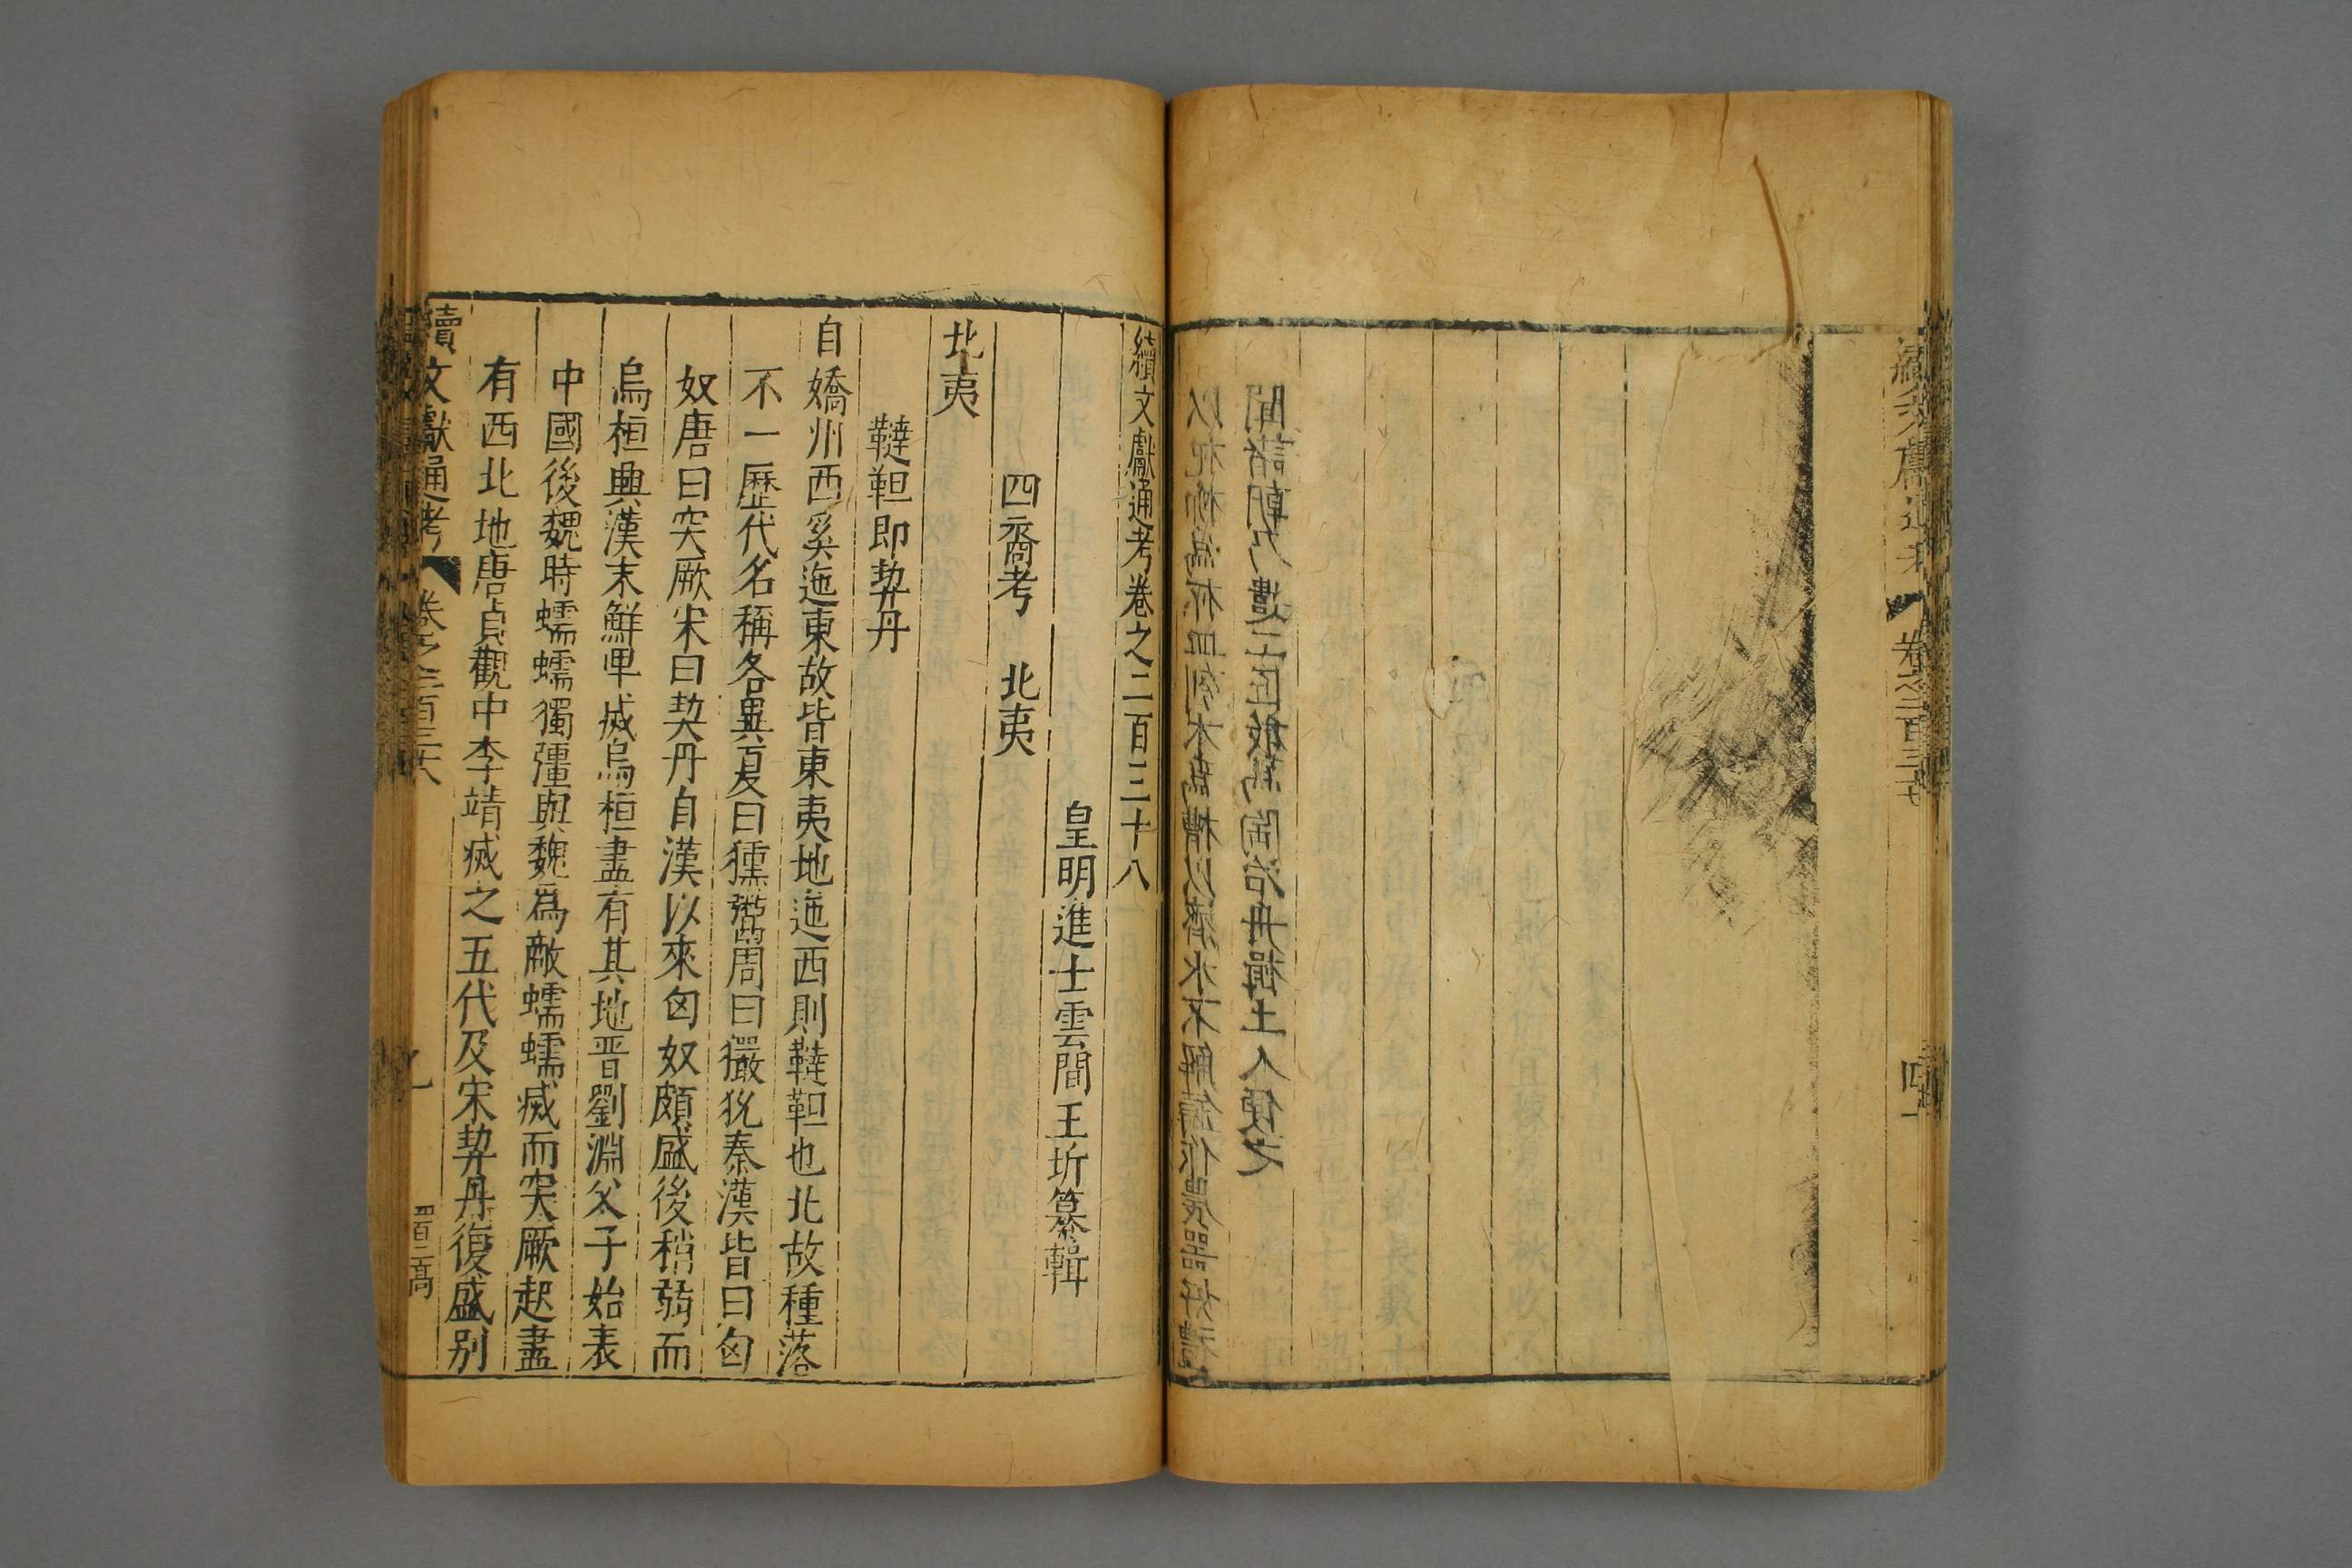 續文獻通考 卷之二百三十七
以杞柳為杯皿刳木為槽以濟水不解鑄作農器好禮
聞諸朝乃遣工匠教為陶冶舟楫土人便之
續文獻通考卷之二百三十八
皇明進士雲間王圻纂輯
四裔考 北夷
北夷
韃靼即契丹
自嬌州西奚迤東故皆東夷地迤西則韃靼也北故種落
不一歷代名稱各異夏曰獯鬻周曰玁狁秦漢皆曰匈
奴唐曰突厥宋曰契丹自漢以來匈奴頗盛後稍弱而
烏桓興漢末鮮卑滅烏桓盡有其地晉劉淵父子始表
中國後魏時蠕蠕獨彊與魏為敵蠕蠕滅而突厥起盡
有西北地唐貞觀中李靖滅之五代及宋契丹復盛別
續文獻通考 卷之二百三十八 一 四百二高